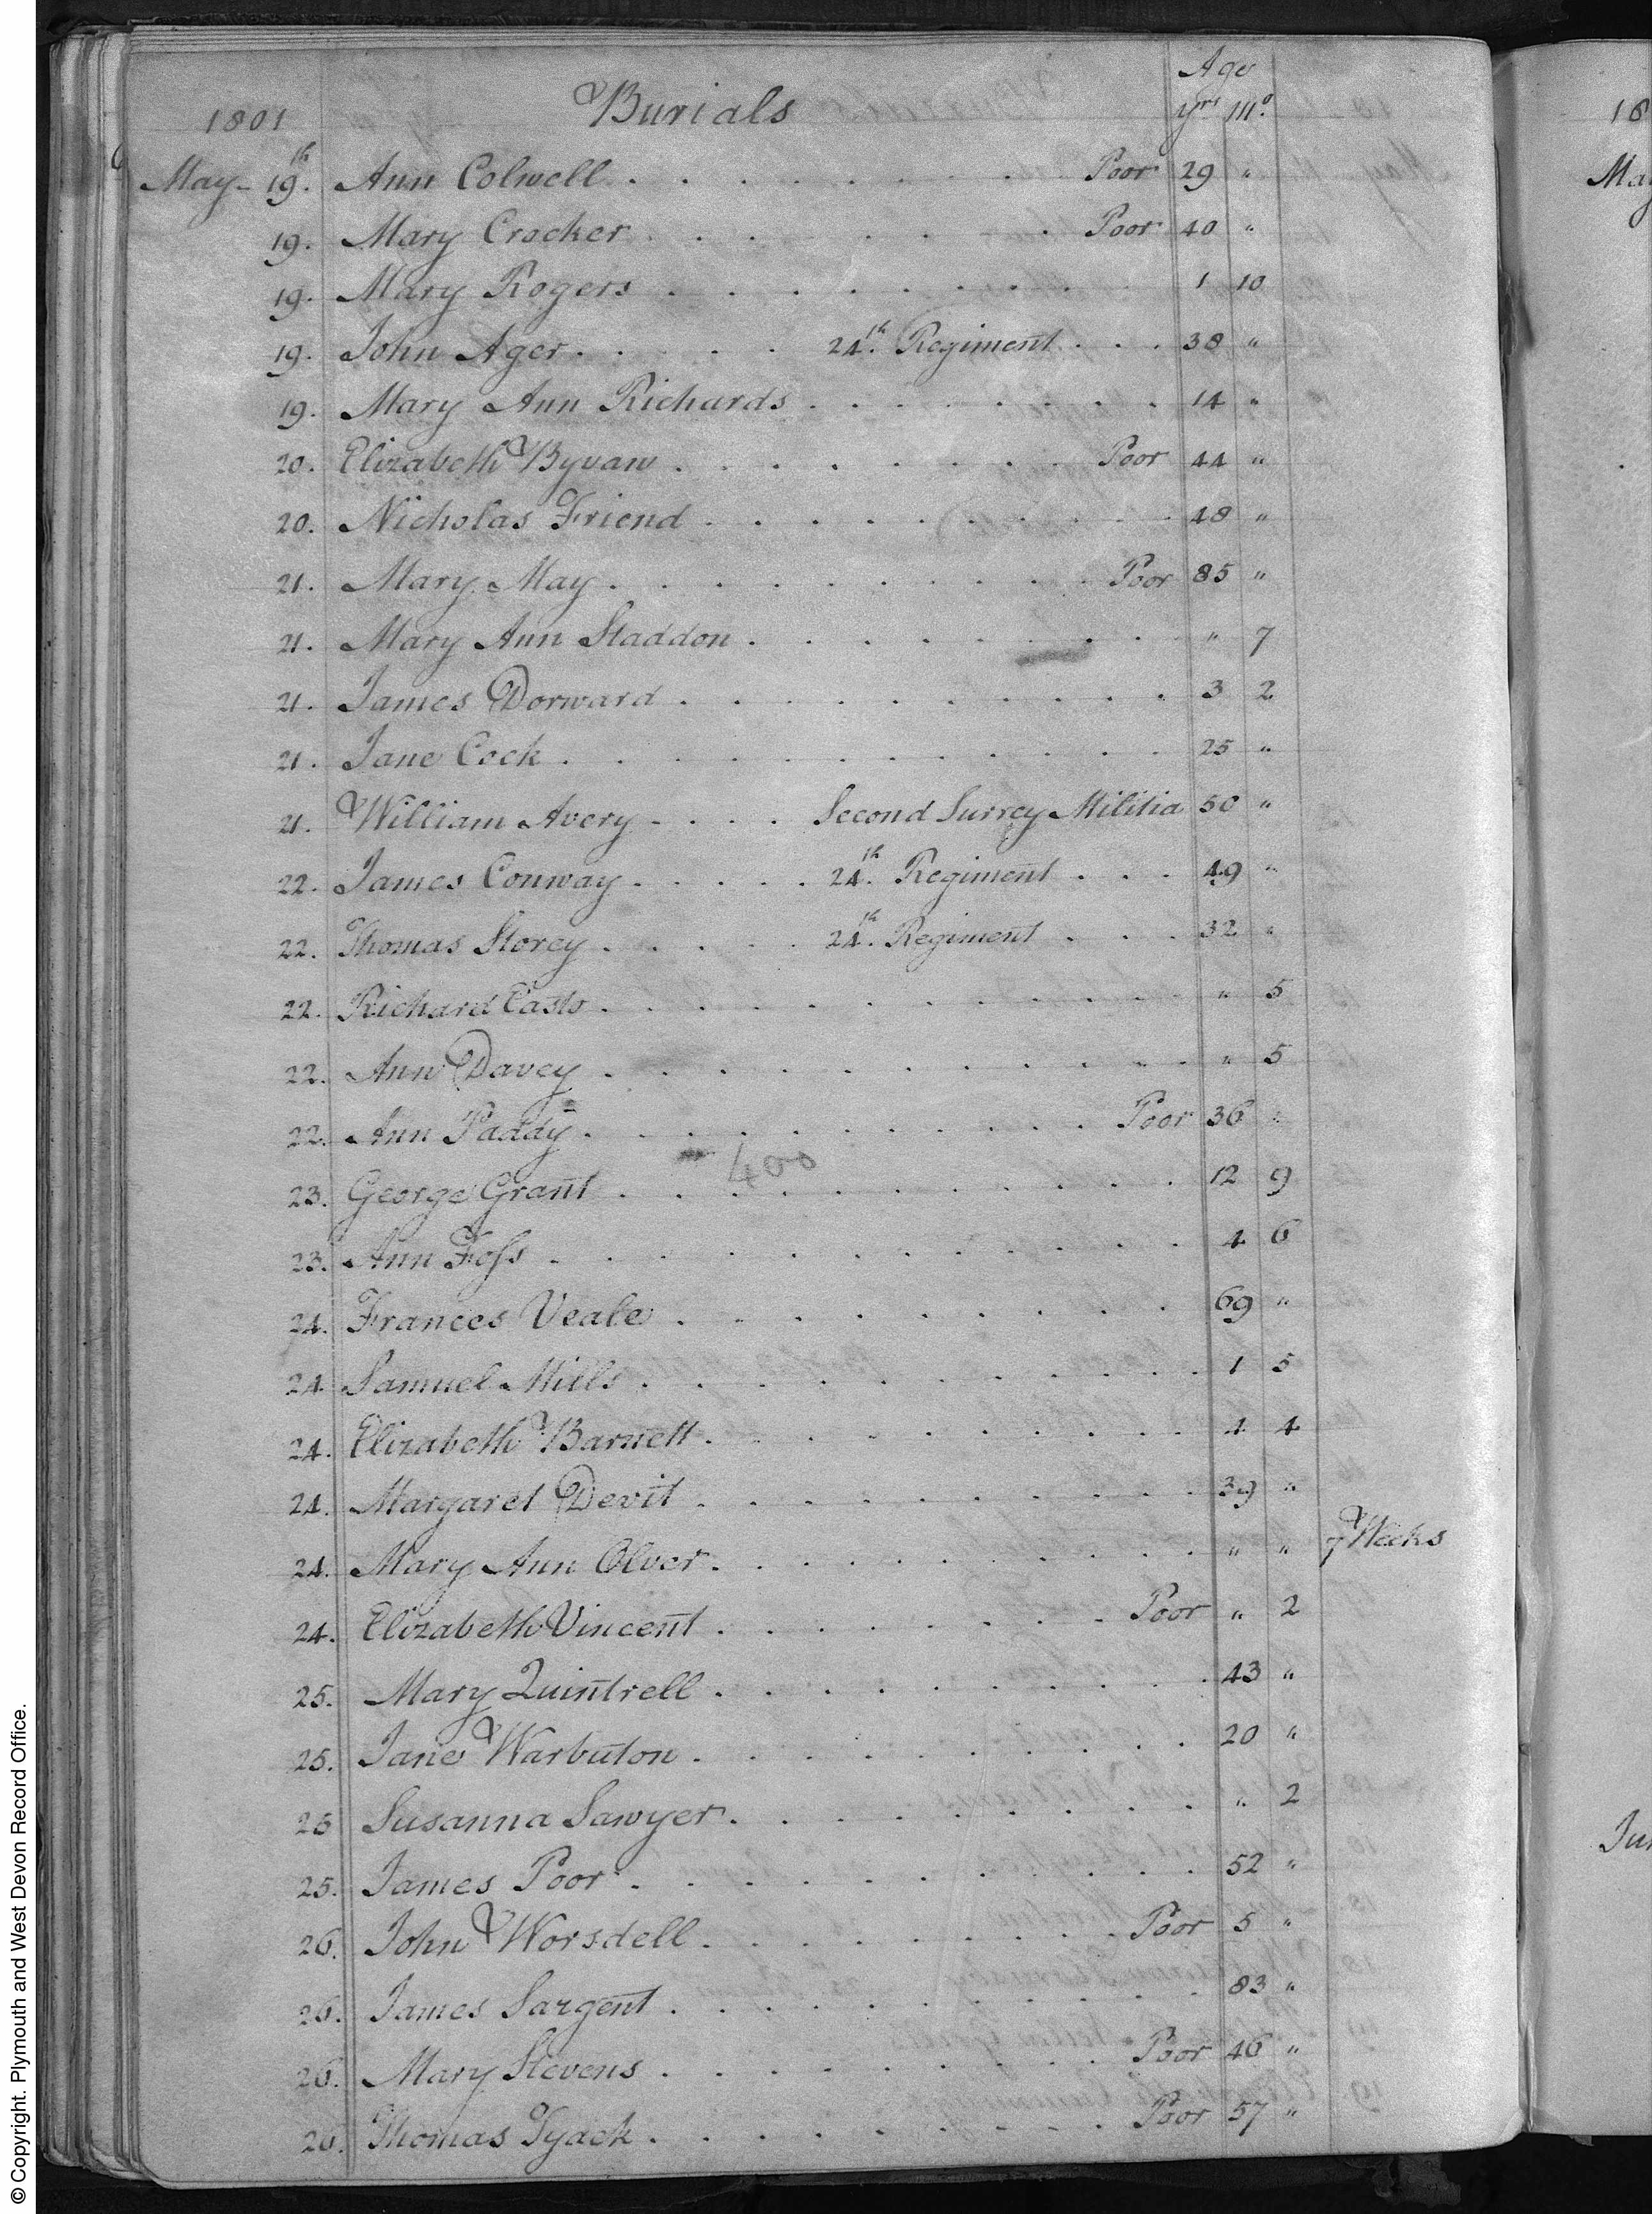 Age
1801 Burials yrs Mo.
May - 19th. Ann Colwell . . . . . . . . Poor 29 "
19. Mary Crocker . . . . . . . Poor 40 "
19. Mary Rogers . . . . . . . . 1 10
19. John Ager . . . . . 24th. Regiment . . . 38 "
19. Mary Ann Richards . . . . . . . 14 "
20. Elizabeth Byvaw . . . . . . . . Poor 44 "
20. Nicholas Friend . . . . . . . . . 48 "
21. Mary May . . . . . . . . . Poor 85 "
21. Mary Ann Staddon . . . . . . . . " 7
21. James Dorward . . . . . . . . . . 3 2
21. Jane Cock . . . . . . . . . . 25 "
21. William Avery - . . . Second Surrey Militia 50 "
22. James Conway . . . . 24th. Regiment . . . 49 "
22. Thomas Storey . . . . . 24th. Regiment . . . 32 "
22. Richard Casto . . . . . . . . . . " 5
22. Ann Davey . . . . . . . . . . . " 5
22. Ann Paddy . . . . . . . . . . Poor 36 "
400
23. George Grant . . . . . . . . . . . 12 9
23. Ann Foſs . . . . . . . . . . . . 4 6
24. Frances Veale . . . . . . . . . 69 "
24. Samuel Mills . . . . . . . . . . 1 5
24. Elizabeth Barnett . . . . . . . . . 4 4
24. Margaret Devit . . . . . . . . . 39 "
24. Mary Ann Olver . . . . . . . . . " " 7 Weeks
24. Elizabeth Vincent . . . . . . . . Poor " 2
25. Mary Quintrell . . . . . . . . . . 43 "
25. Jane Warbuton . . . . . . . . . . 20 "
25 Susanna Sawyer . . . . . . . . . " 2
25. James Poor . . . . . . . . . . 52 "
26. John Worsdell . . . . . . . . . Poor 5 "
26. James Sargent . . . . . . . . . . 83 "
26. Mary Stevens . . . . . . . . . Poor 46 "
26. Thomas Tyack . . . . . . . . . Poor 57 "
18
Ma
Ju
© Copyright. Plymouth and West Devon Record Office.